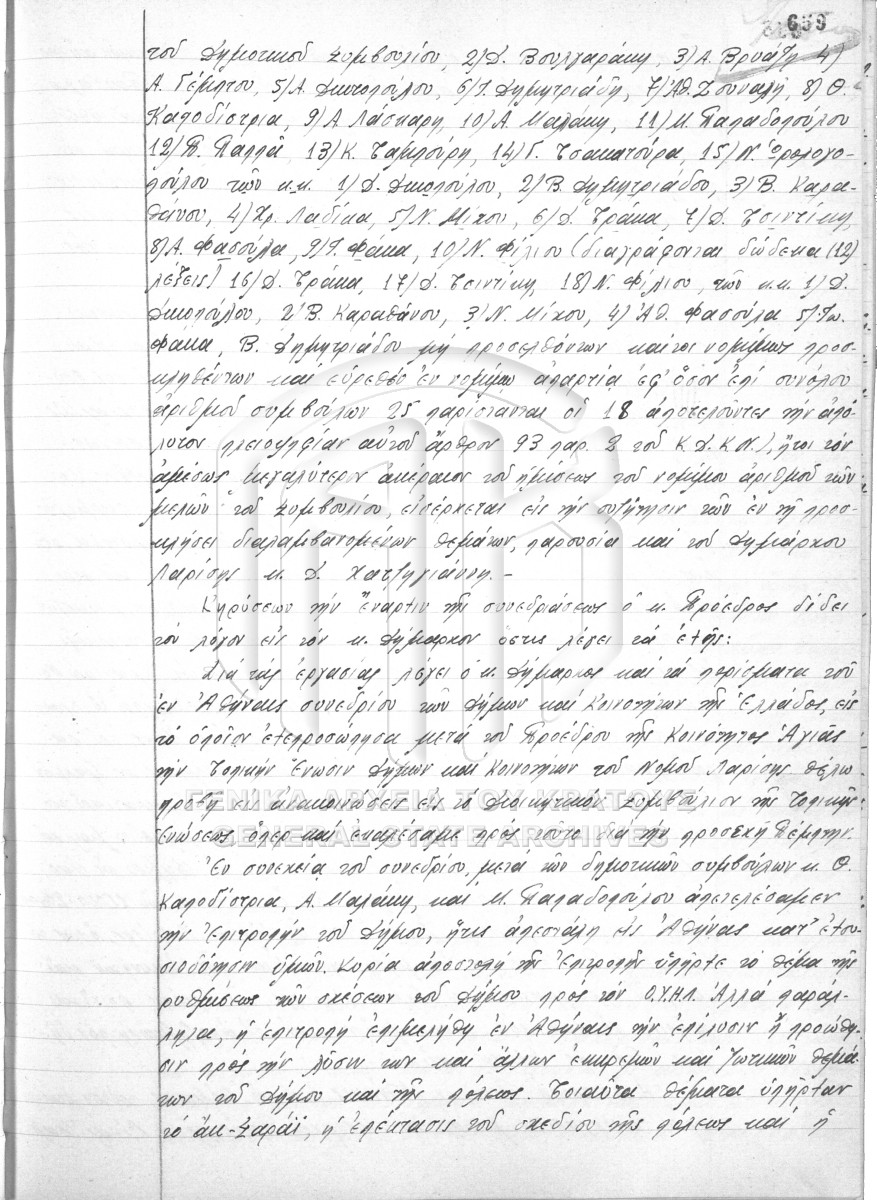 659
τοῦ Δημοτικοῦ Συμβουλίου, 2) Δ. Βουλγαράκη, 3) Α. Βρυάζη 4)
Α. Γέμπτου, 5) Α. Δικτοπούλου, 6) Ι. Δημητριάδη, 7) Ἀθ. Ζουναλῆ, 8) Θ.
Καποδίστρια, 9) Α. Λάσκαρη, 10) Α. Μαλάκη, 11) Μ. Παπαδοπούλου
12) Π. Παππᾶ, 13) Κ. Ταμπούρη, 14) Γ. Τσακατούρα, 15) Ν. Ὡρολογο-
πούλου τῶν κ.κ. 1) Δ. Δικοπούλου, 2) Β. Δημητριάδου, 3) Β. Καρα-
θάνου, 4) Χρ. Λαδίκα, 5) Ν. Μίχου, 6) Δ. Τράκα, 7) Δ. Τσιντίκη,
8) Α. Φασούλα, 9) Ι. Φάκα, 10) Ν. Φίλιου (διαγράφονται δώδεκα (12)
λέξεις) 16) Δ. Τράκα, 17) Δ. Τσιντίκη, 18) Ν. Φίλιου, τῶν κ.κ. 1) Δ.
Δικοπούλου, 2) Β. Καραθάνου, 3) Ν. Μίχου, 4) Ἀθ. Φασούλα 5) Ἰω.
Φάκα, Β. Δημητριάδου μή προσελθόντων καίτοι νομίμως προσ-
κληθέντων καί εὑρεθέν ἐν νομίμῳ ἀπαρτίᾳ ἐφ' ὅσον ἐπί συνόλου
ἀριθμοῦ συμβούλων 25 παρίστανται οἱ 18 ἀποτελοῦντες τήν ἀπό-
λυτον πλειοψηφίαν αὐτοῦ ἄρθρον 93 παρ. 2 τοῦ Κ.Δ.Κ.Ν.), ἤτοι τόν
ἀμέσως μεγαλύτερον ἀκέραιον τοῦ ἡμίσεως τοῦ νομίμου ἀριθμοῦ τῶν
μελῶν τοῦ Συμβουλίου, εἰσέρχεται εἰς τήν συζήτησιν τῶν ἐν τῇ προσ-
κλήσει διαλαμβανομένων θεμάτων, παρουσίᾳ καί τοῦ Δημάρχου
Λαρίσης κ. Δ. Χατζηγιάννη.-
Κηρύσσων τήν ἔναρξιν τῆς συνεδριάσεως ὁ κ. Πρόεδρος δίδει
τόν λόγον εἰς τόν κ. Δήμαρχον ὅστις λέγει τά ἑξῆς:
Διά τάς ἐργασίας λέγει ὁ κ. Δήμαρχος καί τά πορίσματα τοῦ
ἐν Ἀθήναις συνεδρίου τῶν Δήμων καί Κοινοτήτων τῆς Ἑλλάδος, εἰς
τό ὁποῖον ἐξεπροσώπησα μετά τοῦ Προέδρου τῆς Κοινότητος Ἁγιᾶς
τήν Τοπικήν Ἕνωσιν Δήμων καί Κοινοτήτων τοῦ Νομοῦ Λαρίσης θέλω
προβῆ εἰς ἀνακοινώσεις εἰς τό Διοικητικόν Συμβούλιον τῆς Τοπικῆς
Ἑνώσεως ὅπερ καί ἐκαλέσαμε πρός τοῦτο διά τήν προσεχῆ Πέμπτην.
Ἐν συνεχείᾳ τοῦ συνεδρίου, μετά τῶν δημοτικῶν συμβούλων κ. Θ.
Καποδίστρια, Α. Μαλάκη, καί Μ. Παπαδοπούλου ἀπετελέσαμεν
τήν Ἐπιτροπήν τοῦ Δήμου, ἥτις ἀπεστάλη εἰς Ἀθήνας κατ' ἐξου-
σιοδότησιν ὑμῶν. Κυρία ἀποστολή τῆς Ἐπιτροπῆς ὑπῆρξε τό θέμα τῆς
ρυθμίσεως τῶν σχέσεων τοῦ Δήμου πρός τόν Ο.Υ.Η.Λ. Ἀλλά παράλ-
ληλα, ἡ ἐπιτροπή ἐπιμελήθη ἐν Ἀθήναις τήν ἐπίλυσιν ἤ προώθη-
σιν πρός τήν λύσιν των καί ἄλλων ἐκκρεμῶν καί ζωτικῶν θεμά-
των τοῦ Δήμου καί τῆς πόλεως. Τοιαῦτα θέματα ὑπῆρξαν
τό ἄκ-Σαράϊ, ἡ ἐπέκτασις τοῦ σχεδίου τῆς πόλεως καί ἡ
ΓΕΝΙΚΑ ΑΡΧΕΙΑ ΤΟΥ ΚΡΑΤΟΥΣ
GENERAL STATE ARCHIVES